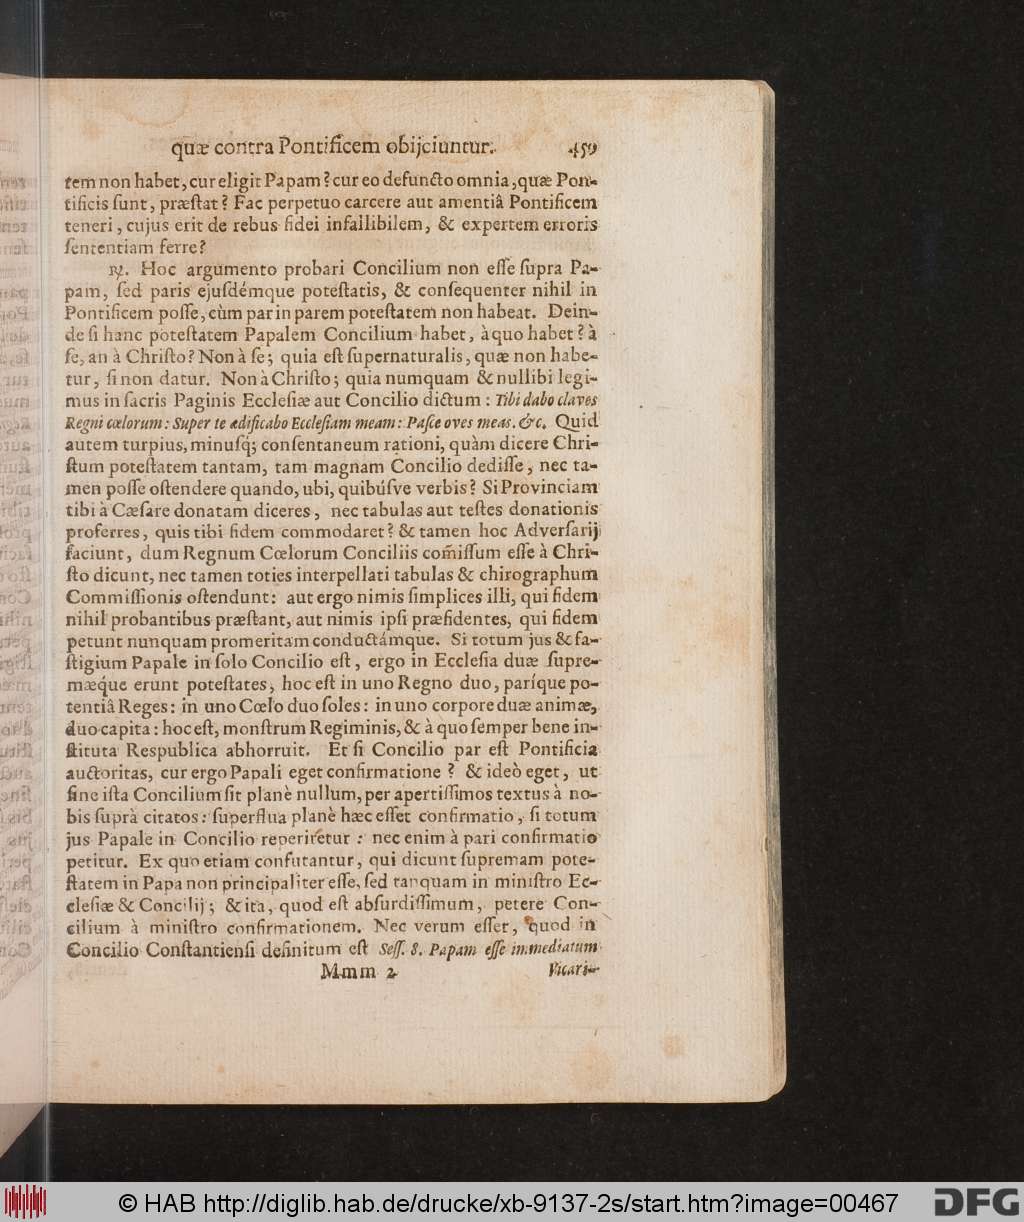 quæ contra Pontificem obijciuntur. 459
tem non habet, cur eligit Papam? cur eo defuncto omnia, quæ Pon-
tificis ſunt, præſtat? Fac perpetuo carcere aut amentiâ Pontificem
teneri, cujus erit de rebus fidei infallibilem, & expertem erroris
ſententiam ferre?
℞. Hoc argumento probari Concilium non eſſe ſupra Pa-
pam, ſed paris ejuſdémque poteſtatis, & conſequenter nihil in
Pontificem poſſe, cùm par in parem poteſtatem non habeat. Dein-
de ſi hanc poteſtatem Papalem Concilium habet, à quo habet? à
ſe, an à Chriſto? Non à ſe; quia eſt ſupernaturalis, quæ non habe-
tur, ſi non datur. Non à Chriſto; quia numquam & nullibi legi-
mus in ſacris Paginis Eccleſiæ aut Concilio dictum: Tibi dabo claves
Regni cœlorum: Super te ædificabo Eccleſiam meam: Paſce oves meas. &c. Quid
autem turpius, minuſq́; conſentaneum rationi, quàm dicere Chri-
ſtum poteſtatem tantam, tam magnam Concilio dediſſe, nec ta-
men poſſe oſtendere quando, ubi, quibúſve verbis? Si Provinciam
tibi à Cæſare donatam diceres, nec tabulas aut teſtes donationis
proferres, quis tibi fidem commodaret? & tamen hoc Adverſarij
faciunt, dum Regnum Cœlorum Conciliis com̃iſſum eſſe à Chri-
ſto dicunt, nec tamen toties interpellati tabulas & chirographum
Commiſſionis oſtendunt: aut ergo nimis ſimplices illi, qui fidem
nihil probantibus præſtant, aut nimis ipſi præfidentes, qui fidem
petunt nunquam promeritam conductámque. Si totum jus & fa-
ſtigium Papale in ſolo Concilio eſt, ergo in Eccleſia duæ ſupre-
mæq́ue erunt poteſtates, hoc eſt in uno Regno duo, paríque po-
tentiâ Reges: in uno Cœlo duo ſoles: in uno corpore duæ animæ,
duo capita: hoc eſt, monſtrum Regiminis, & à quo ſemper bene in-
ſtituta Reſpublica abhorruit. Et ſi Concilio par eſt Pontificia
auctoritas, cur ergo Papali eget confirmatione? & ideò eget, ut
ſine iſta Concilium ſit planè nullum, per apertiſſimos textus à no-
bis ſuprà citatos: ſuperflua planè hæc eſſet confirmatio, ſi totum
jus Papale in Concilio reperiretur: nec enim à pari confirmatio
petitur. Ex quo etiam confutantur, qui dicunt ſupremam pote-
ſtatem in Papa non principaliter eſſe, ſed tanquam in miniſtro Ec-
cleſiæ & Concilij; & ita, quod eſt abſurdiſſimum, petere Con-
cilium à miniſtro confirmationem. Nec verum eſſet, quod in
Concilio Conſtantienſi definitum eſt Seſſ. 8. Papam eſſe immediatum
Mmm 2 Vicari-
© HAB http://diglib.hab.de/drucke/xb-9137-2s/start.htm?image=00467 DFG